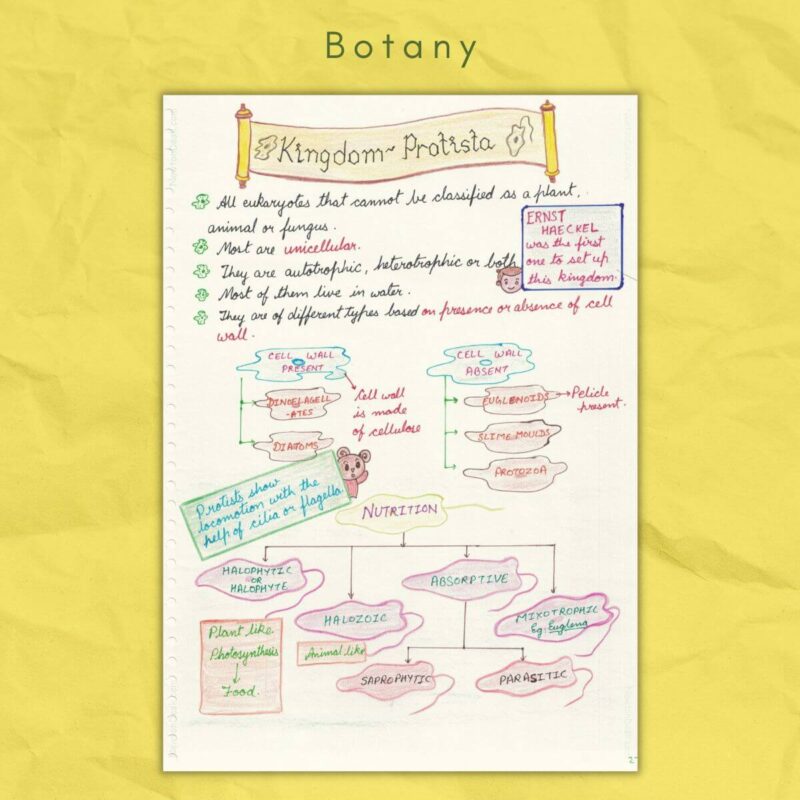 Botany
Kingdom~ Protista
All eukaryotes that cannot be classified as a plant,
animal or fungus.
Most are unicellular.
They are autotrophic, heterotrophic or both
Most of them live in water.
They are of different types based on presence or absence of cell
wall.
ERNST
HAECKEL
was the first
one to set up
this kingdom.
CELL WALL
PRESENT
DINOFLAGELL
-ATES
DIATOMS
Cell wall
is made
of cellulose
CELL WALL
ABSENT
EUGLENOIDS
Pelicle
present.
SLIME MOULDS
PROTOZOA
Protists show
locomotion with the
help of cilia or flagella
NUTRITION
HALOPHYTIC
OR
HALOPHYTE
HALOZOIC
ABSORPTIVE
MIXOTROPHIC
Eg: Euglena
Plant like
Photosynthesis
Food.
Animal like
SAPROPHYTIC
PARASITIC